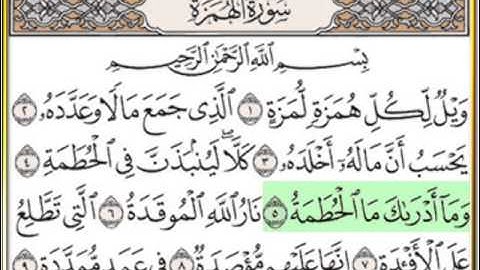 سُورَةُ الْهُمَزَةِ
بِسْمِ اللَّهِ الرَّحْمَٰنِ الرَّحِيمِ
وَيْلٌ لِّكُلِّ هُمَزَةٍ لُّمَزَةٍ ١ الَّذِي جَمَعَ مَالًا وَعَدَّدَهُ ٢
يَحْسَبُ أَنَّ مَالَهُ أَخْلَدَهُ ٣ كَلَّا ۖ لَيُنبَذَنَّ فِي الْحُطَمَةِ ٤
وَمَا أَدْرَاكَ مَا الْحُطَمَةُ ٥ نَارُ اللَّهِ الْمُوقَدَةُ ٦ الَّتِي تَطَّلِعُ
عَلَى الْأَفْئِدَةِ ٧ إِنَّهَا عَلَيْهِم مُّؤْصَدَةٌ ٨ فِي عَمَدٍ مُّمَدَّدَةٍ ٩